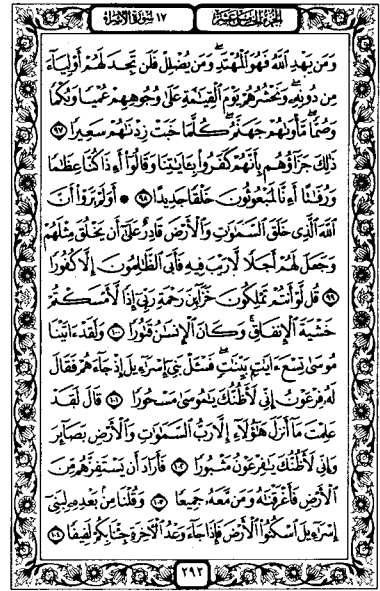 الجزء الخامس عشر
١٧ سورة الإسراء
وَمَن يَهْدِ ٱللَّهُ فَهُوَ ٱلْمُهْتَدِ ۖ وَمَن يُضْلِلْ فَلَن تَجِدَ لَهُمْ أَوْلِيَآءَ
مِن دُونِهِۦ ۖ وَنَحْشُرُهُمْ يَوْمَ ٱلْقِيَٰمَةِ عَلَىٰ وُجُوهِهِمْ عُمْيًا وَبُكْمًا
وَصُمًّا ۖ مَّأْوَىٰهُمْ جَهَنَّمُ ۖ كُلَّمَا خَبَتْ زِدْنَٰهُمْ سَعِيرًا ٩٧
ذَٰلِكَ جَزَآؤُهُم بِأَنَّهُمْ كَفَرُوا۟ بِـَٔايَٰتِنَا وَقَالُوٓا۟ أَءِذَا كُنَّا عِظَٰمًا
وَرُفَٰتًا أَءِنَّا لَمَبْعُوثُونَ خَلْقًا جَدِيدًا ٩٨ ۞ أَوَلَمْ يَرَوْا۟ أَنَّ
ٱللَّهَ ٱلَّذِى خَلَقَ ٱلسَّمَٰوَٰتِ وَٱلْأَرْضَ قَادِرٌ عَلَىٰٓ أَن يَخْلُقَ مِثْلَهُمْ
وَجَعَلَ لَهُمْ أَجَلًا لَّا رَيْبَ فِيهِ فَأَبَى ٱلظَّٰلِمُونَ إِلَّا كُفُورًا
٩٩ قُل لَّوْ أَنتُمْ تَمْلِكُونَ خَزَآئِنَ رَحْمَةِ رَبِّىٓ إِذًا لَّأَمْسَكْتُمْ
خَشْيَةَ ٱلْإِنفَاقِ ۚ وَكَانَ ٱلْإِنسَٰنُ قَتُورًا ١٠٠ وَلَقَدْ ءَاتَيْنَا
مُوسَىٰ تِسْعَ ءَايَٰتٍۭ بَيِّنَٰتٍ ۖ فَسْـَٔلْ بَنِىٓ إِسْرَٰٓءِيلَ إِذْ جَآءَهُمْ فَقَالَ
لَهُۥ فِرْعَوْنُ إِنِّى لَأَظُنُّكَ يَٰمُوسَىٰ مَسْحُورًا ١٠١ قَالَ لَقَدْ
عَلِمْتَ مَآ أَنزَلَ هَٰٓؤُلَآءِ إِلَّا رَبُّ ٱلسَّمَٰوَٰتِ وَٱلْأَرْضِ بَصَآئِرَ
وَإِنِّى لَأَظُنُّكَ يَٰفِرْعَوْنُ مَثْبُورًا ١٠٢ فَأَرَادَ أَن يَسْتَفِزَّهُم مِّنَ
ٱلْأَرْضِ فَأَغْرَقْنَٰهُ وَمَن مَّعَهُۥ جَمِيعًا ١٠٣ وَقُلْنَا مِنۢ بَعْدِهِۦ لِبَنِىٓ
إِسْرَٰٓءِيلَ ٱسْكُنُوا۟ ٱلْأَرْضَ فَإِذَا جَآءَ وَعْدُ ٱلْءَاخِرَةِ جِئْنَا بِكُمْ لَفِيفًا ١٠٤
٢٩٢